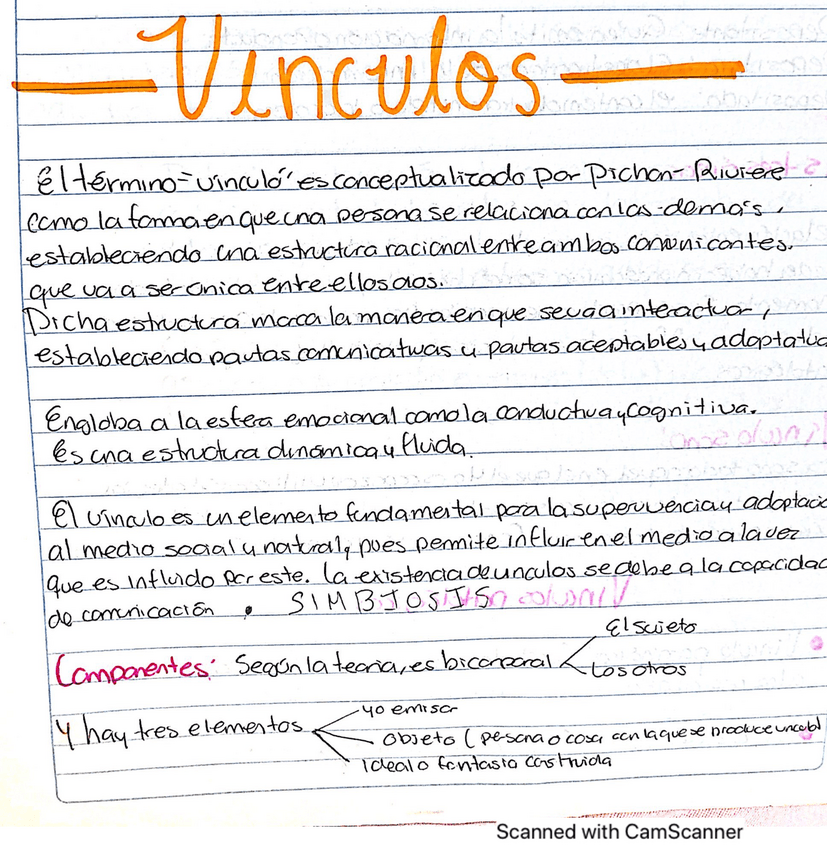 Vinculos
El término "vinculo" es conceptualizado por Pichon-Riviere
como la forma en que una persona se relaciona con los demás,
estableciendo una estructura racional entre ambos comunicantes.
que va a ser única entre ellos dos.
Dicha estructura marca la manera en que se va a interactuar,
estableciendo pautas comunicativas y pautas aceptables y adaptativa
Engloba a la esfera emocional como la conductua y cognitiva.
Es una estructura dinámica y fluida.
El vinculo es un elemento fundamental para la supervivencia y adaptació
al medio social y natural, pues permite influir en el medio a la vez
que es influido por este. La existencia de vinculos se debe a la capacidad
de comunicación . SIMBIOSIS
El sujeto
Componentes: Según la teoria, es bicorporal
Los otros
yo emisor
Y hay tres elementos
Objeto (persona o cosa con la que se produce
Ideal o fantasia construida
Scanned with CamScanner